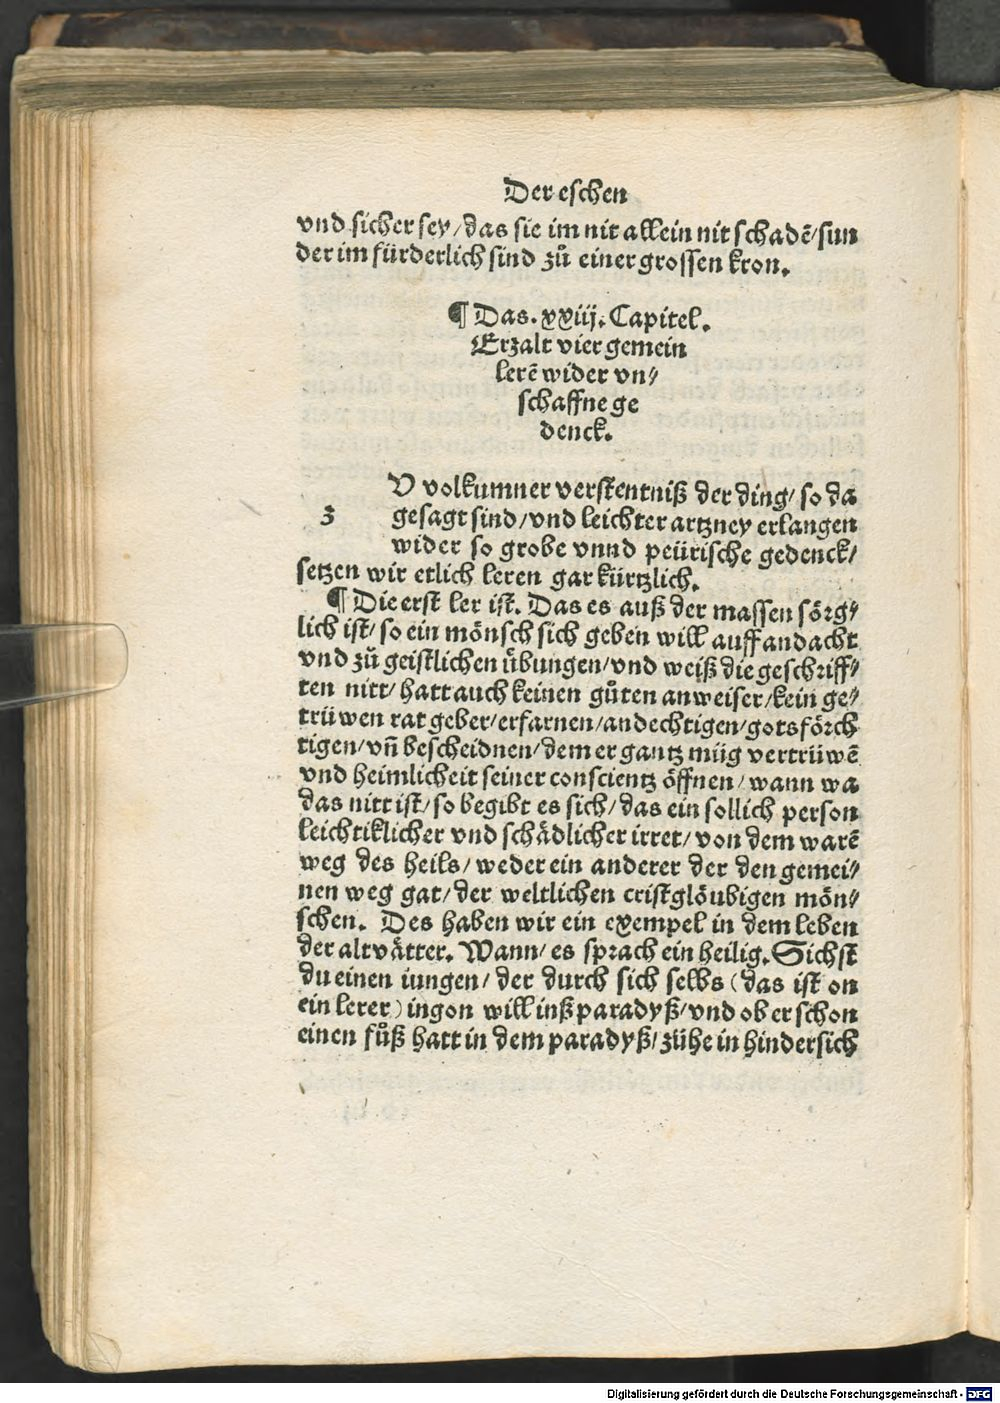 Der eschen
vnd sicher sey/das sie im nit allein nit schadẽ/sun
der im fürderlich sind zů einer grossen kron.
¶ Das. xxiij. Capitel.
Erzalt vier gemein
lerẽ wider vn⸗
schaffne ge
denck.
U volkumner verstentniß der ding/ so da
3 gesagt sind/vnd leichter artzney erlangen
wider so grobe vnnd peürische gedenck/
setzen wir etlich leren gar kürtzlich.
¶ Die erst ler ist. Das es auß der massen sörg⸗
lich ist/ so ein mönsch sich geben will auff andacht
vnd zů geistlichen übungen/vnd weiß die geschriff⸗
ten nitt/ hatt auch keinen gůten anweiser/kein ge⸗
trüwen rat geber/erfarnen/andechtigen/gotsförch
tigen/vñ bescheidnen/dem er gantz müg vertrüwẽ
vnd heimlicheit seiner conscientz öffnen/ wann wa
das nitt ist/ so begibt es sich/das ein sollich person
leichtiklicher vnd schädlicher irret/ von dem warẽ
weg des heils/ weder ein anderer der den gemei⸗
nen weg gat/der weltlichen cristglöubigen mön⸗
schen. Des haben wir ein exempel in dem leben
der altvätter. Wann/ es sprach ein heilig. Sichst
du einen iungen/ der durch sich selbs (das ist on
ein lerer) ingon will inß paradyß/vnd ob er schon
einen fůß hatt in dem paradyß/ zühe in hindersich
Digitalisierung gefördert durch die Deutsche Forschungsgemeinschaft - DFG